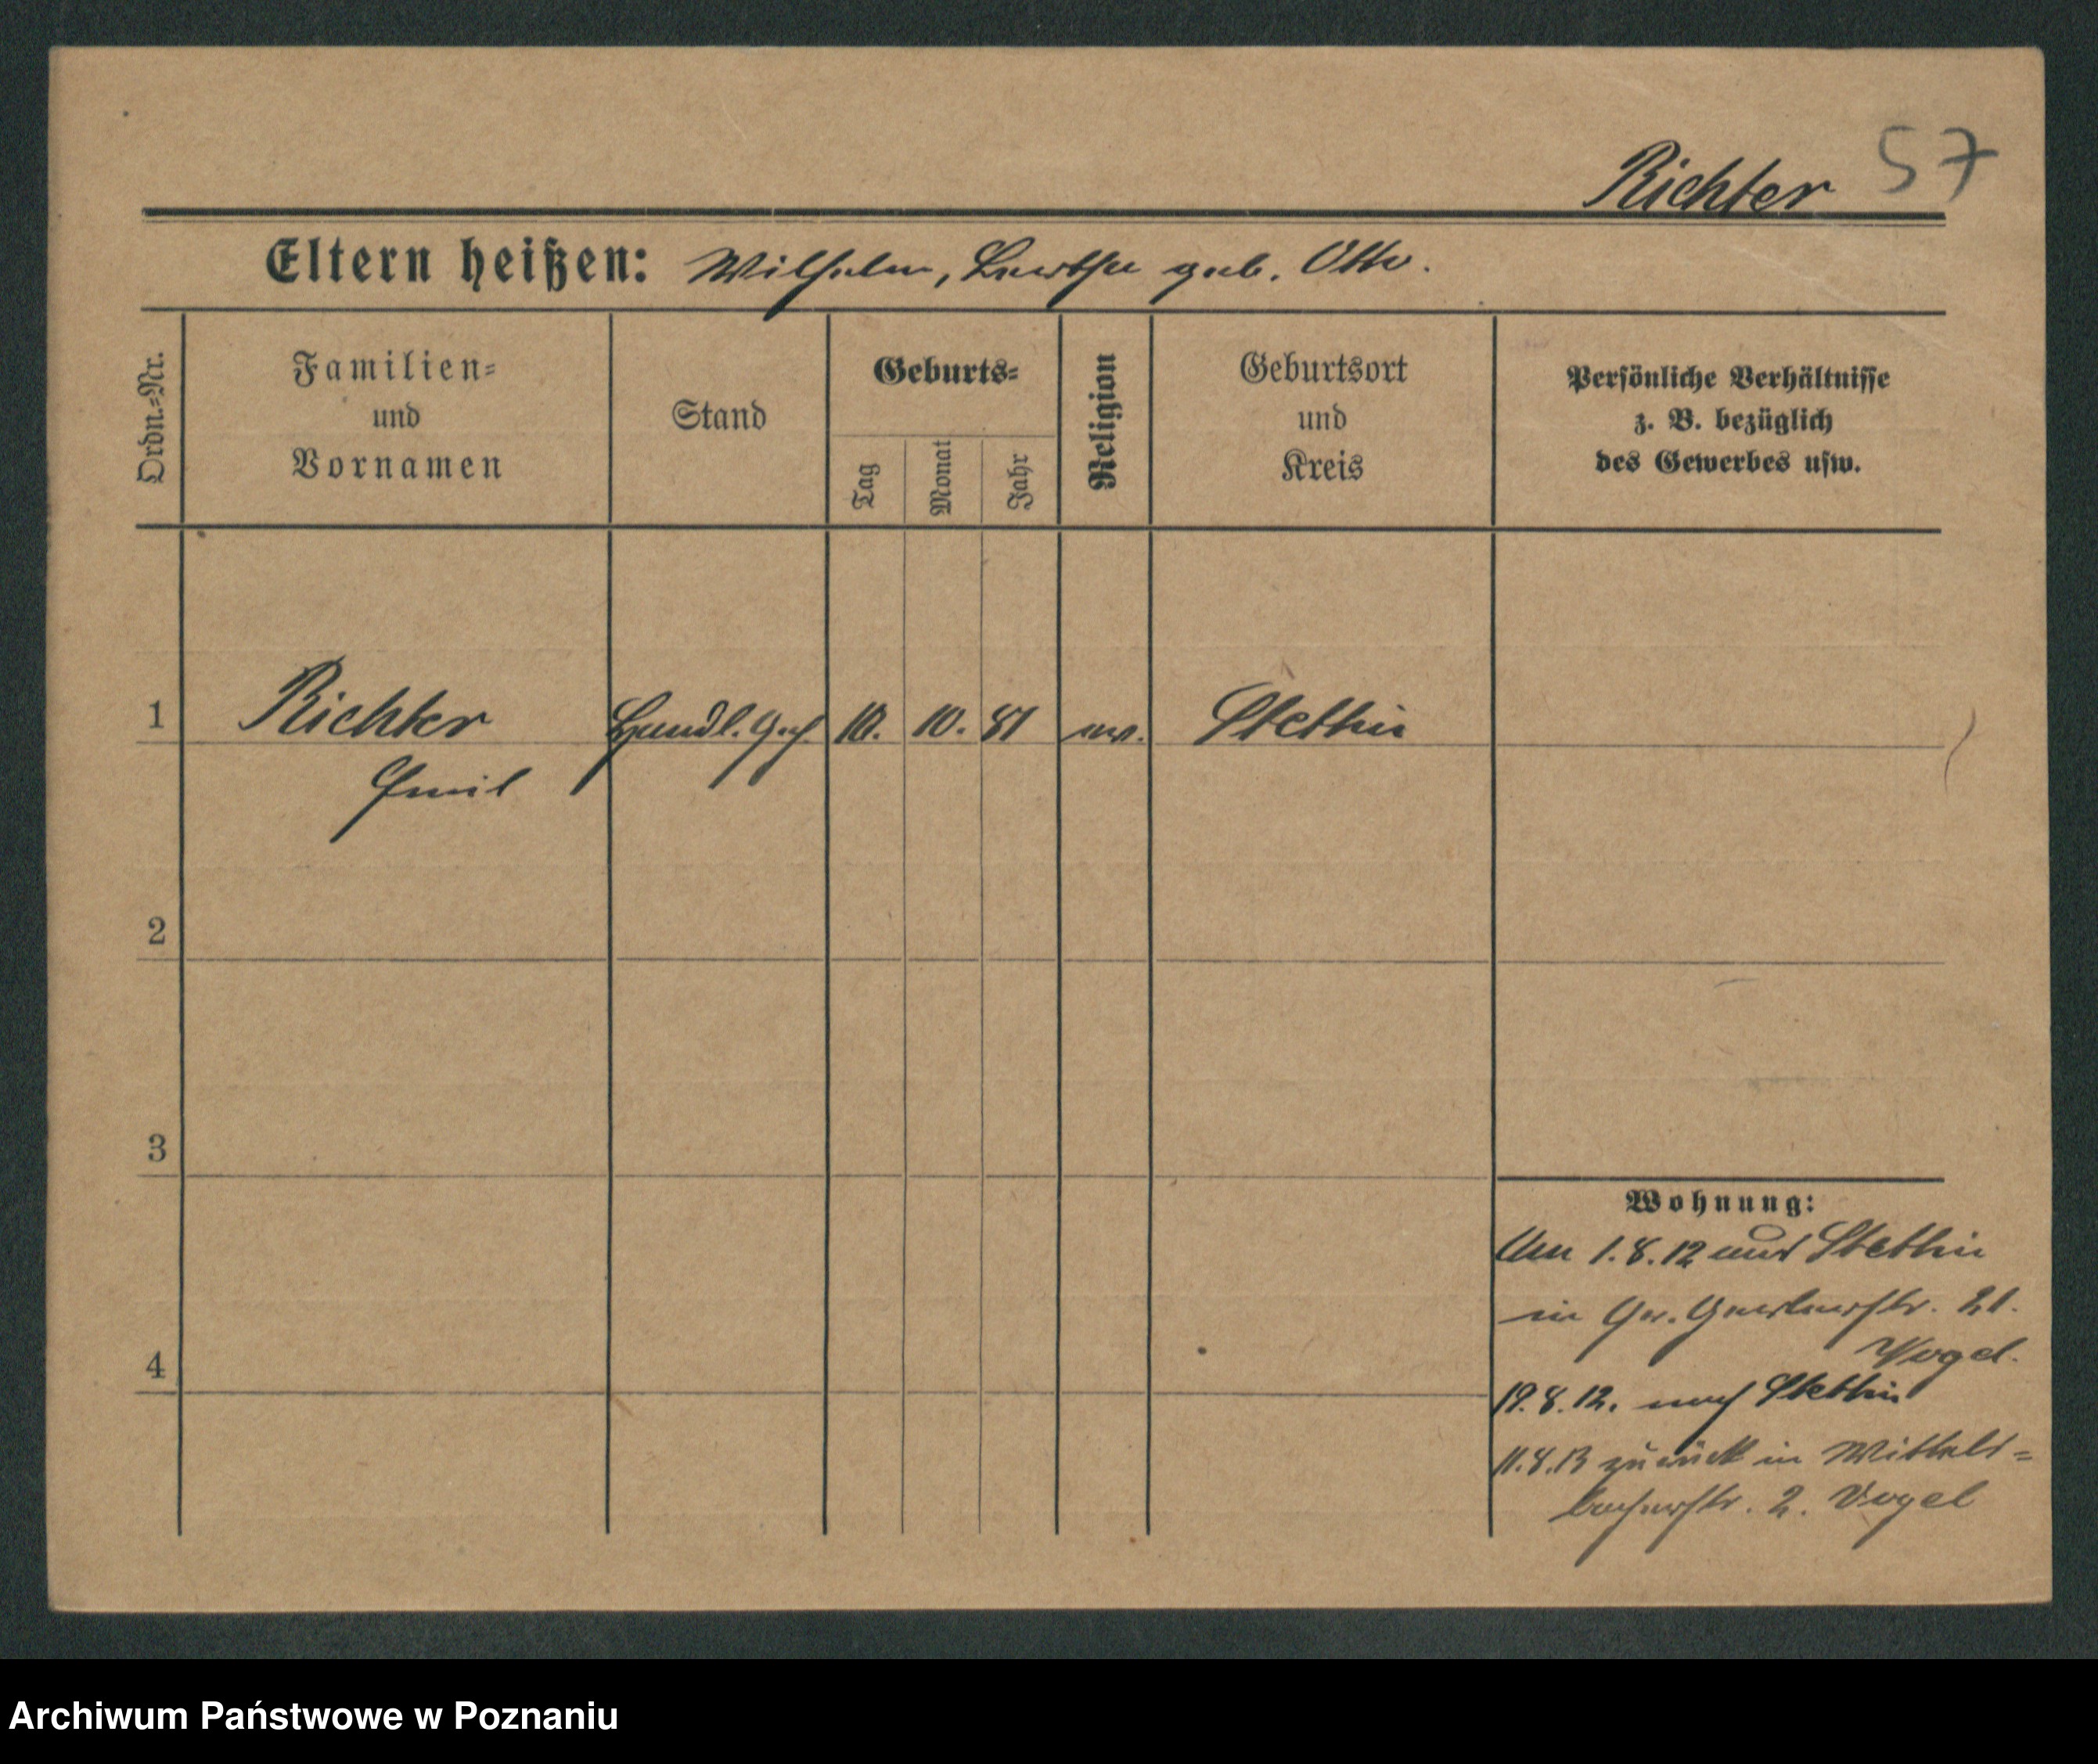 Richter 57
Eltern heißen: Wilhelm, Bertha geb. Otto.
Ordn.-Nr.
Familien-
und
Vornamen
Stand
Geburts-
Tag
Monat
Jahr
Religion
Geburtsort
und
Kreis
Persönliche Verhältnisse
z. B. bezüglich
des Gewerbes usw.
1 Richter Handl. Geh. 10. 10. 81 ev. Stettin
Emil
2
3
4
Wohnung:
Am 1.8.12 aus Stettin
in Gr. Gerberstr. 21.
Vogel.
19.8.12. nach Stettin
11.8.13 zurück in Wittels-
bacherstr. 2. Vogel
Archiwum Państwowe w Poznaniu